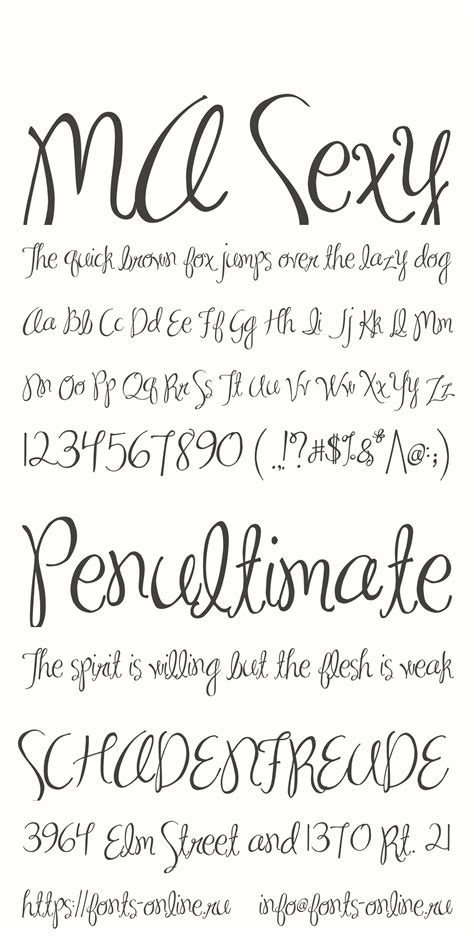 MA Sexy
The quick brown fox jumps over the lazy dog
Aa Bb Cc Dd Ee Ff Gg Hh Ii Jj Kk Ll Mm
Nn Oo Pp Qq Rr Ss Tt Uu Vv Ww Xx Yy Zz
1234567890 (.,!?#$%&*/\@:;)
Penultimate
The spirit is willing but the flesh is weak
SCHADENFREUDE
3964 Elm Street and 1370 Rt. 21
https://fonts-online.ru info@fonts-online.ru